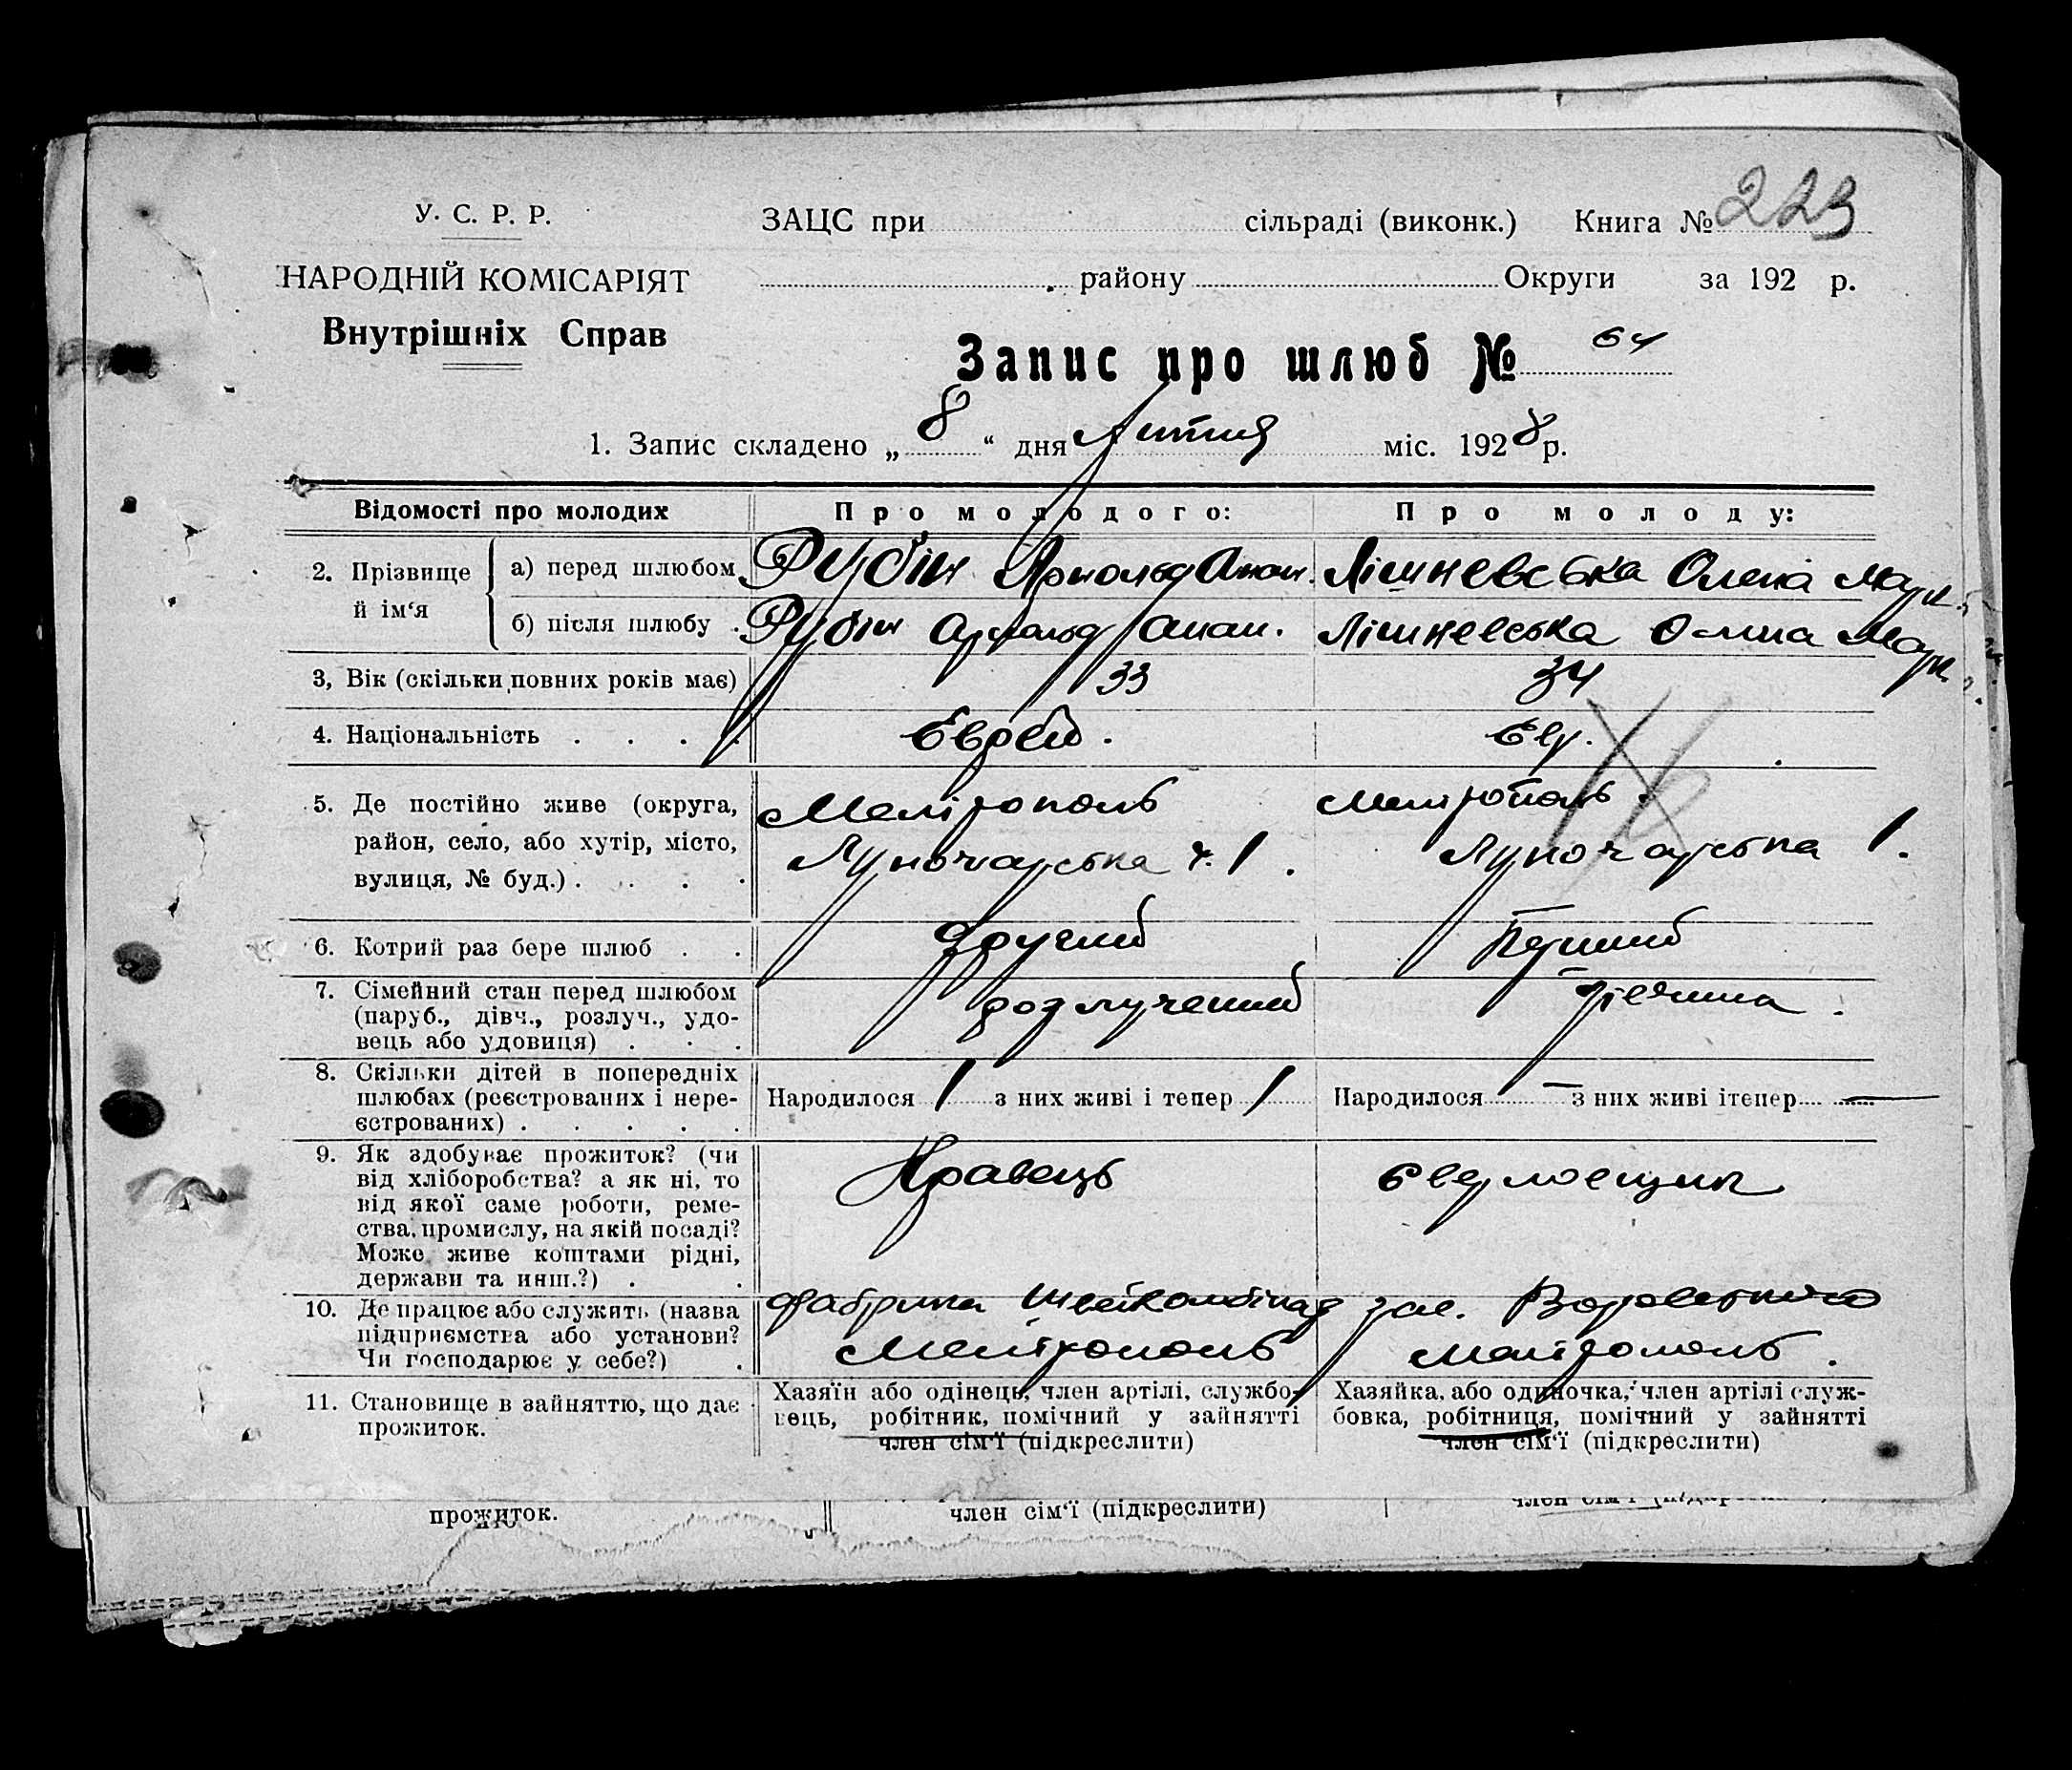 У. С. Р. Р.
НАРОДНІЙ КОМІСАРІЯТ
Внутрішніх Справ
ЗАЦС при сільраді (виконк.) Книга № 223
району Округи за 192 р.
Запис про шлюб № 64
1. Запис складено „ 8 “ дня Лютня міс. 1928 р.
Відомості про молодих Про молодого: Про молоду:
2. Прізвище й ім‘я
а) перед шлюбом Рубін Арнольд Анан. Лішневська Олена Марк.
б) після шлюбу . Рубін Арнольд Анан. Лішневська Олена Марк.
3, Вік (скільки повних років має) 33 34
4. Національність . . . . Єврей. Євр.
5. Де постійно живе (округа, район, село, або хутір, місто, вулиця, № буд.) . . . .
Мелітополь
Луначарська ч. 1.
Мелітополь
Луначарська 1.
6. Котрий раз бере шлюб . . Другий Перший
7. Сімейний стан перед шлюбом
(паруб., дівч., розлуч., удо-
вець або удовиця) . . .
розлучений дівчина.
8. Скільки дітей в попередніх
шлюбах (реєстрованих і нере-
єстрованих) . . . . .
Народилося 1 з них живі і тепер 1 Народилося — з них живі ітепер —
9. Як здобуває прожиток? (чи
від хліборобства? а як ні, то
від якої саме роботи, реме-
ства, промислу, на якій посаді?
Може живе коштами рідні,
держави та инш.?) . .
Кравець
10. Де працює або служить (назва
підприємства або установи?
Чи господарює у себе?) .
фабрика Швейкомбінад
Мелітополь
зав. Воровського
Мелітополь.
11. Становище в зайняттю, що дає
прожиток.
Хазяїн або одінець, член артілі, службо-
вець, робітник, помічний у зайнятті
член сім‘ї (підкреслити)
Хазяйка, або одиночка, член артілі служ-
бовка, робітниця, помічний у зайнятті
член сім‘ї (підкреслити)
прожиток. член сім‘ї (підкреслити)